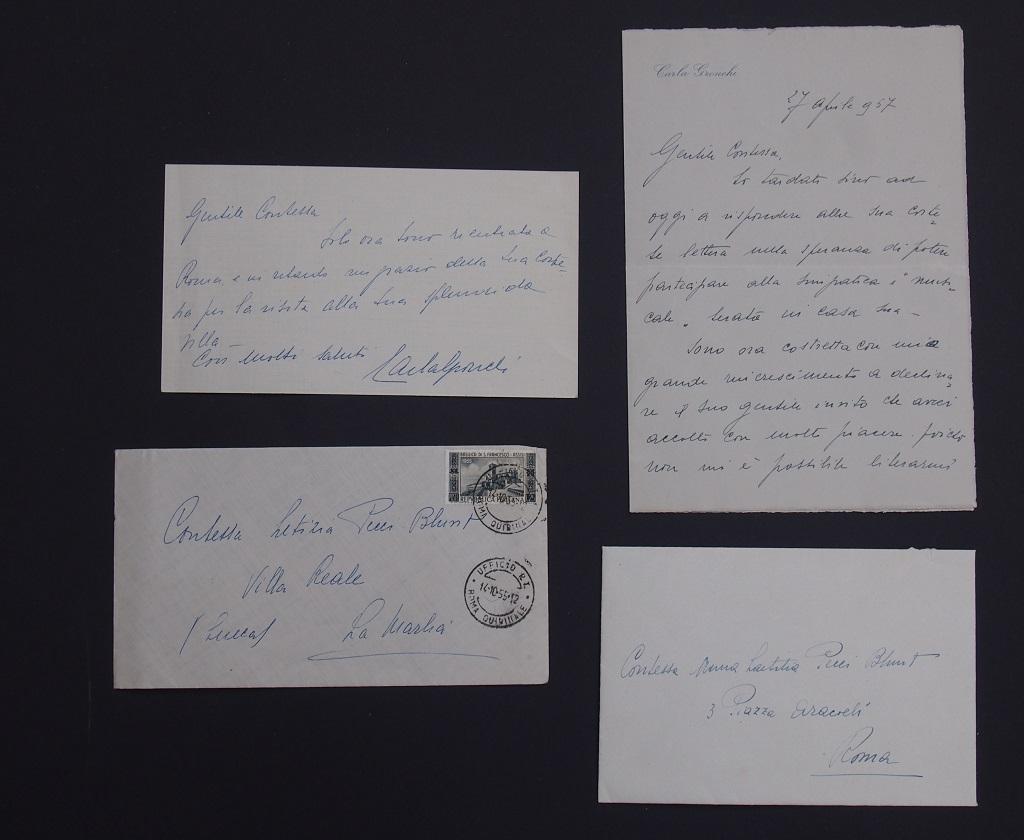 Gentile Contessa
Solo ora sono rientrata a
Roma e in ritardo ringrazio della Sua corte-
sia per la visita alla Sua splendida
villa –
Con molti saluti
Carla Gronchi
BASILICA DI S. FRANCESCO - ASSISI
REPUBBLICA ITALIANA
ROMA QUIRINALE
UFFICIO P.T.
14·10·55·12
ROMA QUIRINALE
Contessa Letizia Pecci Blunt
Villa Reale
(Lucca) La Marlia
Carla Gronchi
27 Aprile 957
Gentile Contessa,
ho tardato sino ad
oggi a rispondere alla Sua corte=
se lettera nella speranza di poter
partecipare alla simpatica "musi=
cale" serata in casa Sua –
Sono ora costretta con mio
grande rincrescimento a declina=
re il Suo gentile invito che avrei
accolto con molto piacere poichè
non mi è possibile liberarmi
Contessa Anna Laetitia Pecci Blunt
3 Piazza Aracoeli
Roma